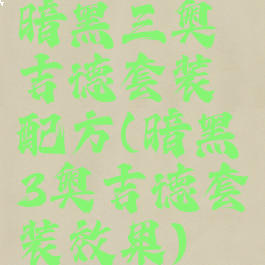 暗黑三奥
吉德套装
配方(暗黑
3奥吉德套
装效果)